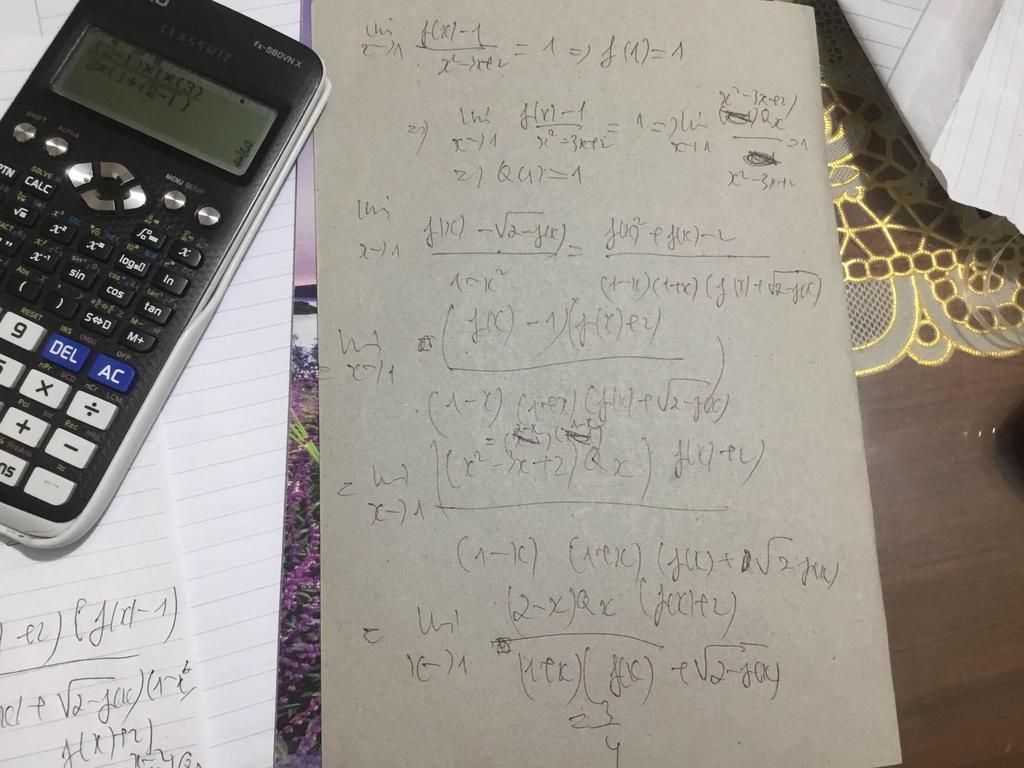 CLASSWIZ
fx-580VN X
SHIFT
ALPHA
MENU SETUP
OPTN
CALC
SOLVE
sin
cos
tan
log
ln
S⇔D
M+
RESET
INS
OFF
9
DEL
AC
×
÷
+
−
3/4
lim x→1 (f(x) − 1)/(x² − 3x + 2) = 1 ⇒ f(1) = 1
⇒ lim x→1 (f(x) − 1)/(x² − 3x + 2) = 1 ⇒ lim x→1 (x² − 3x + 2) Qx / (x² − 3x + 2) = 1
⇒ Q(1) = 1
lim x→1 (f(x) − √(2 − f(x)))/(1 − x²) = (f(x)² + f(x) − 2)/((1 − x)(1 + x)(f(x) + √(2 − f(x))))
= lim x→1 (f(x) − 1)(f(x) + 2)/((1 − x)(1 + x)(f(x) + √(2 − f(x))))
= lim x→1 [(x² − 3x + 2) Qx] f(x) + 2)/((1 − x)(1 + x)(f(x) + √(2 − f(x))))
= lim x→1 (2 − x) Qx (f(x) + 2)/((1 + x)(f(x) + √(2 − f(x))))
= 3/4
) + 2) (f(x) − 1)
+ √(2 − f(x)) (1 − x²
f(x) + 2)